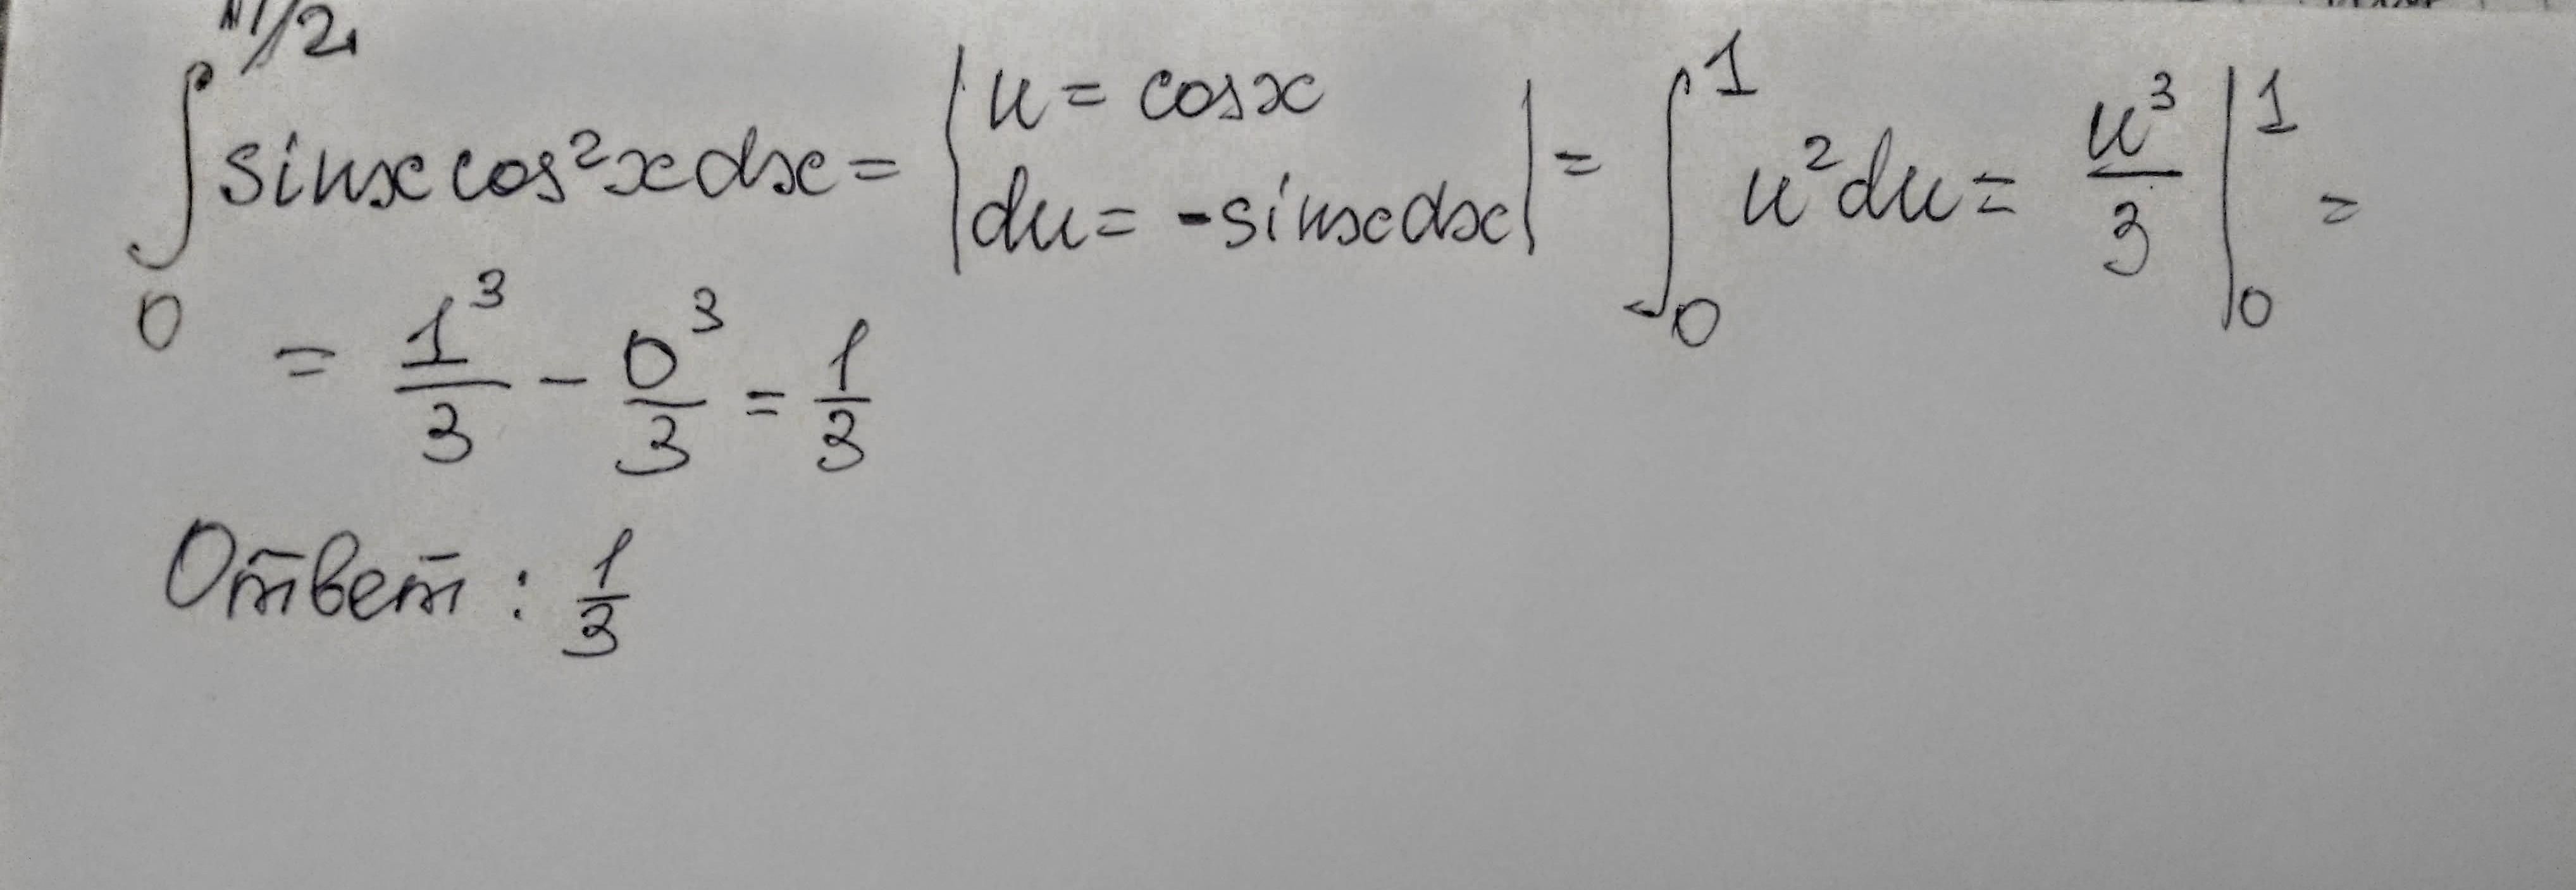 ∫₀^{π/2} sinx cos²x dx = | u = cosx  du = -sinx dx | = ∫₀¹ u² du = u³/3 |₀¹ =
= 1³/3 - 0³/3 = 1/3
Ответ: 1/3